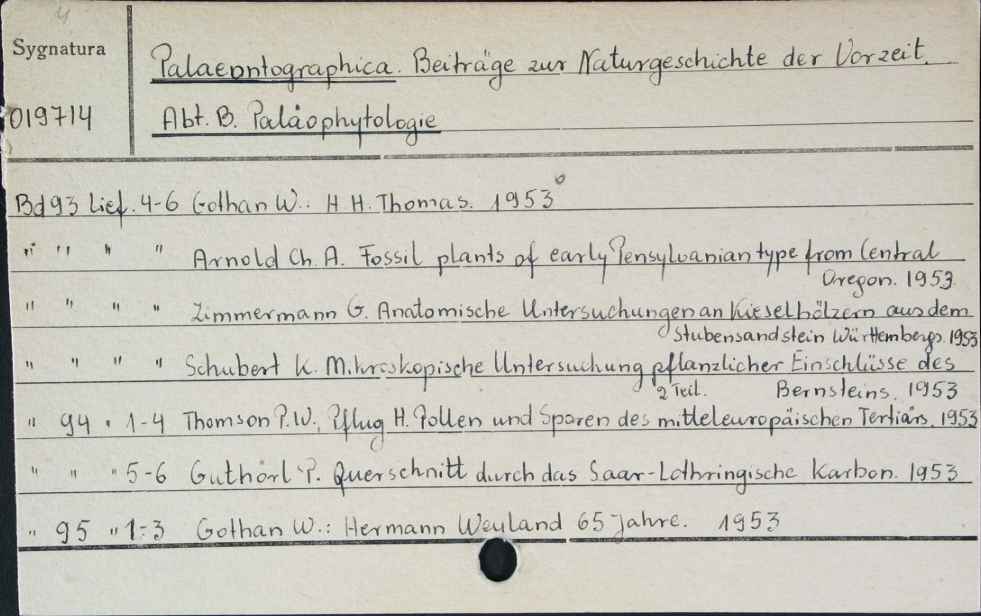 4
Sygnatura
Palaeontographica. Beiträge zur Naturgeschichte der Vorzeit.
019714
Abt. B. Paläophytologie
Bd 93 Lief. 4-6 Gothan W.: H H. Thomas. 1953
" " " " Arnold Ch. A. Fossil plants of early Pensylvanian type from Central
Oregon. 1953
" " " " Zimmermann G. Anatomische Untersuchungen an Kieselhölzern aus dem
Stubensandstein Württembergs. 1953
" " " " Schubert K. Mikroskopische Untersuchung pflanzlicher Einschlüsse des
2 Teil. Bernsteins. 1953
" 94 " 1-4 Thomson P.W., Pflug H. Pollen und Sporen des mitteleuropäischen Tertiärs. 1953
" " " 5-6 Guthörl P. Querschnitt durch das Saar-Lothringische Karbon. 1953
" 95 " 1-3 Gothan W.: Hermann Weyland 65 Jahre. 1953